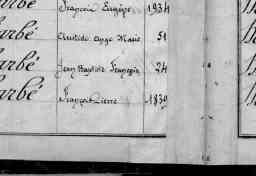 François Eugène 1934
Aristide Ange Marie 51
rbé Jean Baptiste François 24
rbé François Pierre 1830